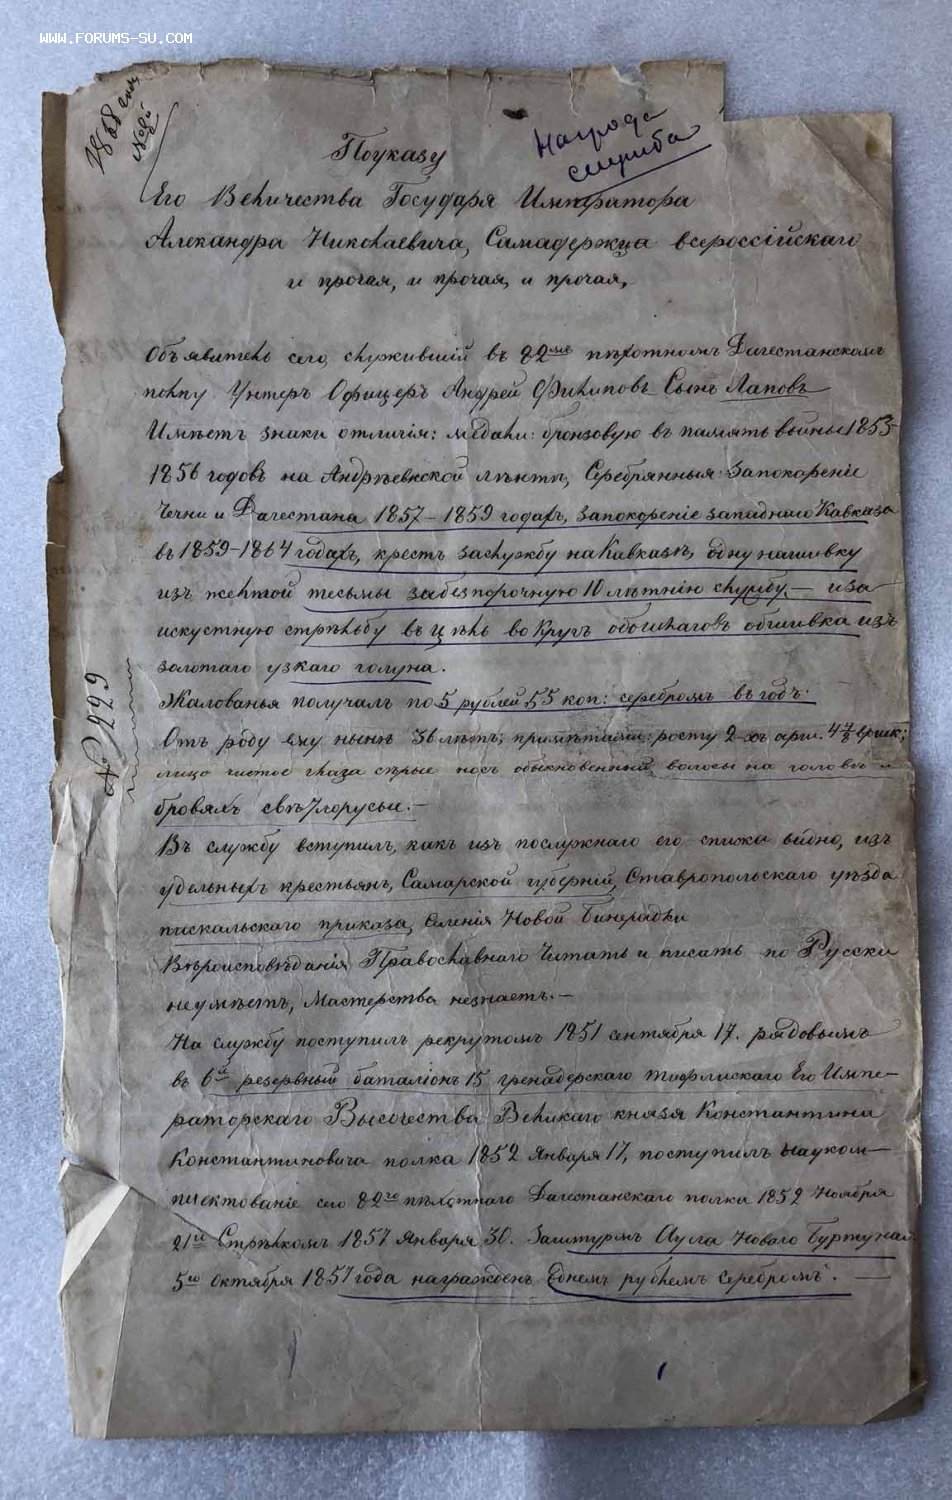 WWW.FORUMS-SU.COM
1868
Награда
служба
По указу
Его Величества Государя Императора
Александра Николаевича, Самадержца всероссійскаго
и прочая, и прочая, и прочая,
Объявитель сего, служившій въ 82мъ пѣхотномъ Дагестанскомъ
полку Унтеръ Офицеръ Андрей Филиповъ Сынъ Лаповъ
Имѣетъ знаки отличія: медали: бронзовую въ память войны 1853-
1856 годовъ на Андрѣевской лѣнтѣ, Серебрянныя: Запокореніе
Чечни и Дагестана 1857-1859 годахъ, запокореніе западнаго Кавказа
въ 1859-1864 годахъ, крестъ заслужбу на Кавказѣ, одну нашивку
изъ желтой тесьмы забезпорочную 10 лѣтнію службу — и за
искустную стрѣльбу въ цѣль вокругъ обошлаговъ обшивка изъ
золотаго узкаго голуна.
Жалованья получалъ по 5 рублей 55 коп: серебромъ въ годъ.
№ 229
Отъ роду ему нынѣ 36 лѣтъ; примѣтами: росту 2-хъ арш. 4 4/8 вершк;
лицо чистое глаза сѣрые носъ обыкновенный, волосы на головѣ и
бровяхъ свѣтлорусые.—
Въ службу вступилъ, какъ изъ послужнаго его списка видно, изъ
удельныхъ крестьянъ, Самарской губерніи, Ставропольскаго уѣзда
пискальскаго приказа, Селенія Новой Бинарадки
Вѣроисповѣданія Православнаго Читать и писать по Русски
неумѣетъ, Мастерства незнаетъ.—
На службу поступилъ рекрутомъ 1851 сентября 17. рядовымъ
въ 6й резервный баталіонъ 15 гренадерскаго тифлискаго Его Импе-
раторскаго Высочества Великаго князя Константина
Константиновича полка 1852 Января 17, поступилъ науком-
плектованіе сего 82го пѣхотнаго Дагестанскаго полка 1852 Ноября
21го Стрѣлкомъ 1857 Января 30. Заштурмъ Аула Новаго Буртуная
5го октября 1857 года награжденъ Однемъ рублемъ серебромъ. —